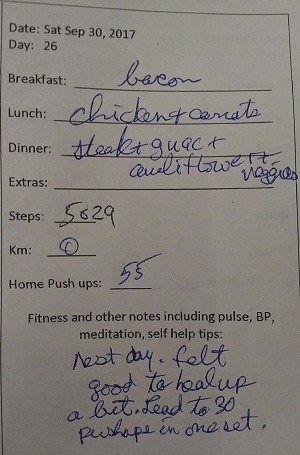 Date: Sat Sep 30, 2017
Day: 26
Breakfast: bacon
Lunch: chicken + carrots
Dinner: steak + guac +
cauliflower + veggies
Extras:
Steps: 5829
Km:
Home Push ups: 55
Fitness and other notes including pulse, BP,
meditation, self help tips:
Rest day. felt
good to heal up
a bit. Lead to 30
pushups in one set.